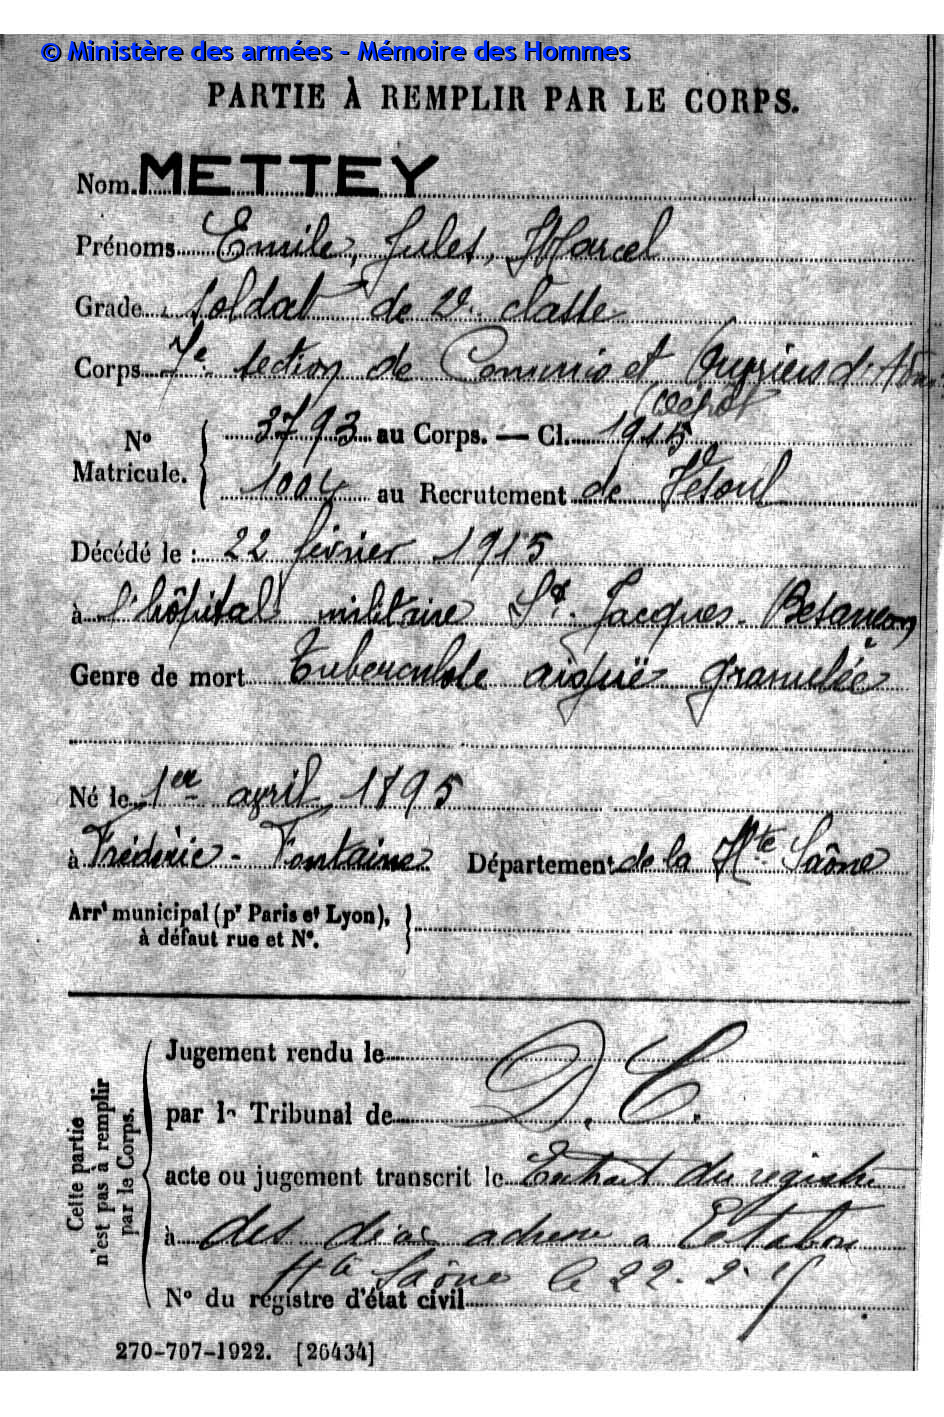 © Ministère des armées - Mémoire des Hommes
PARTIE À REMPLIR PAR LE CORPS.
Nom. METTEY
Prénoms Emile, Jules, Marcel
Grade soldat de 2e classe
Corps 7e section de Commis et Ouvriers d'Adm
(Dépôt
No Matricule. { 3793 au Corps. — Cl. 1915
1004 au Recrutement de Vesoul
Décédé le : 22 février 1915
à l'hôpital militaire St. Jacques - Besançon
Genre de mort Tuberculose aiguë granulée
Né le 1er avril 1895
à Fréderic - Fontaine Département de la Hte Saône
Arrt municipal (pr Paris et Lyon), }
à défaut rue et No.
Cette partie n'est pas à remplir par le Corps.
Jugement rendu le D. C.
par le Tribunal de
acte ou jugement transcrit le Extrait du registre
à des décès adressé a
Hte Saône le 22. 2. 15
No du registre d'état civil
270-707-1922. [26434]